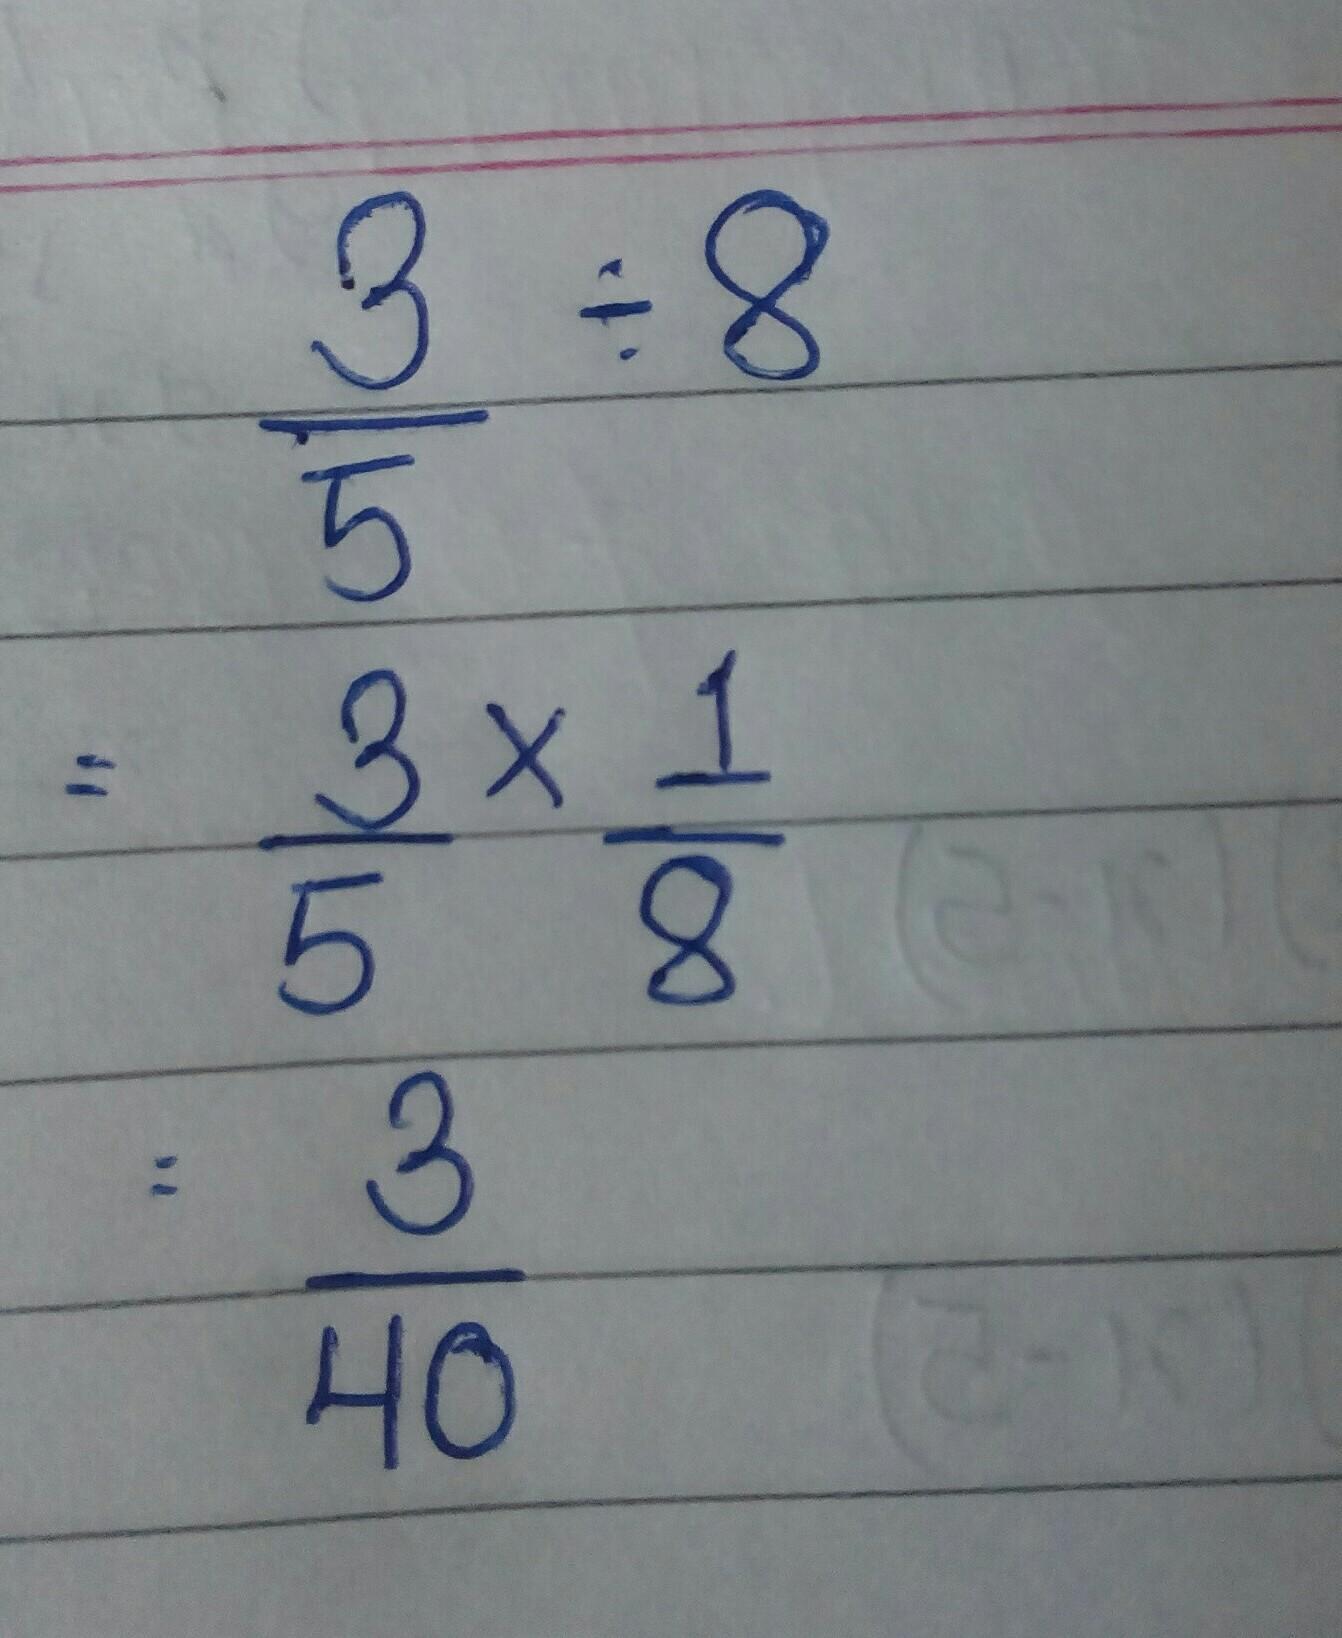 3/5 ÷ 8
= 3/5 × 1/8
= 3/40